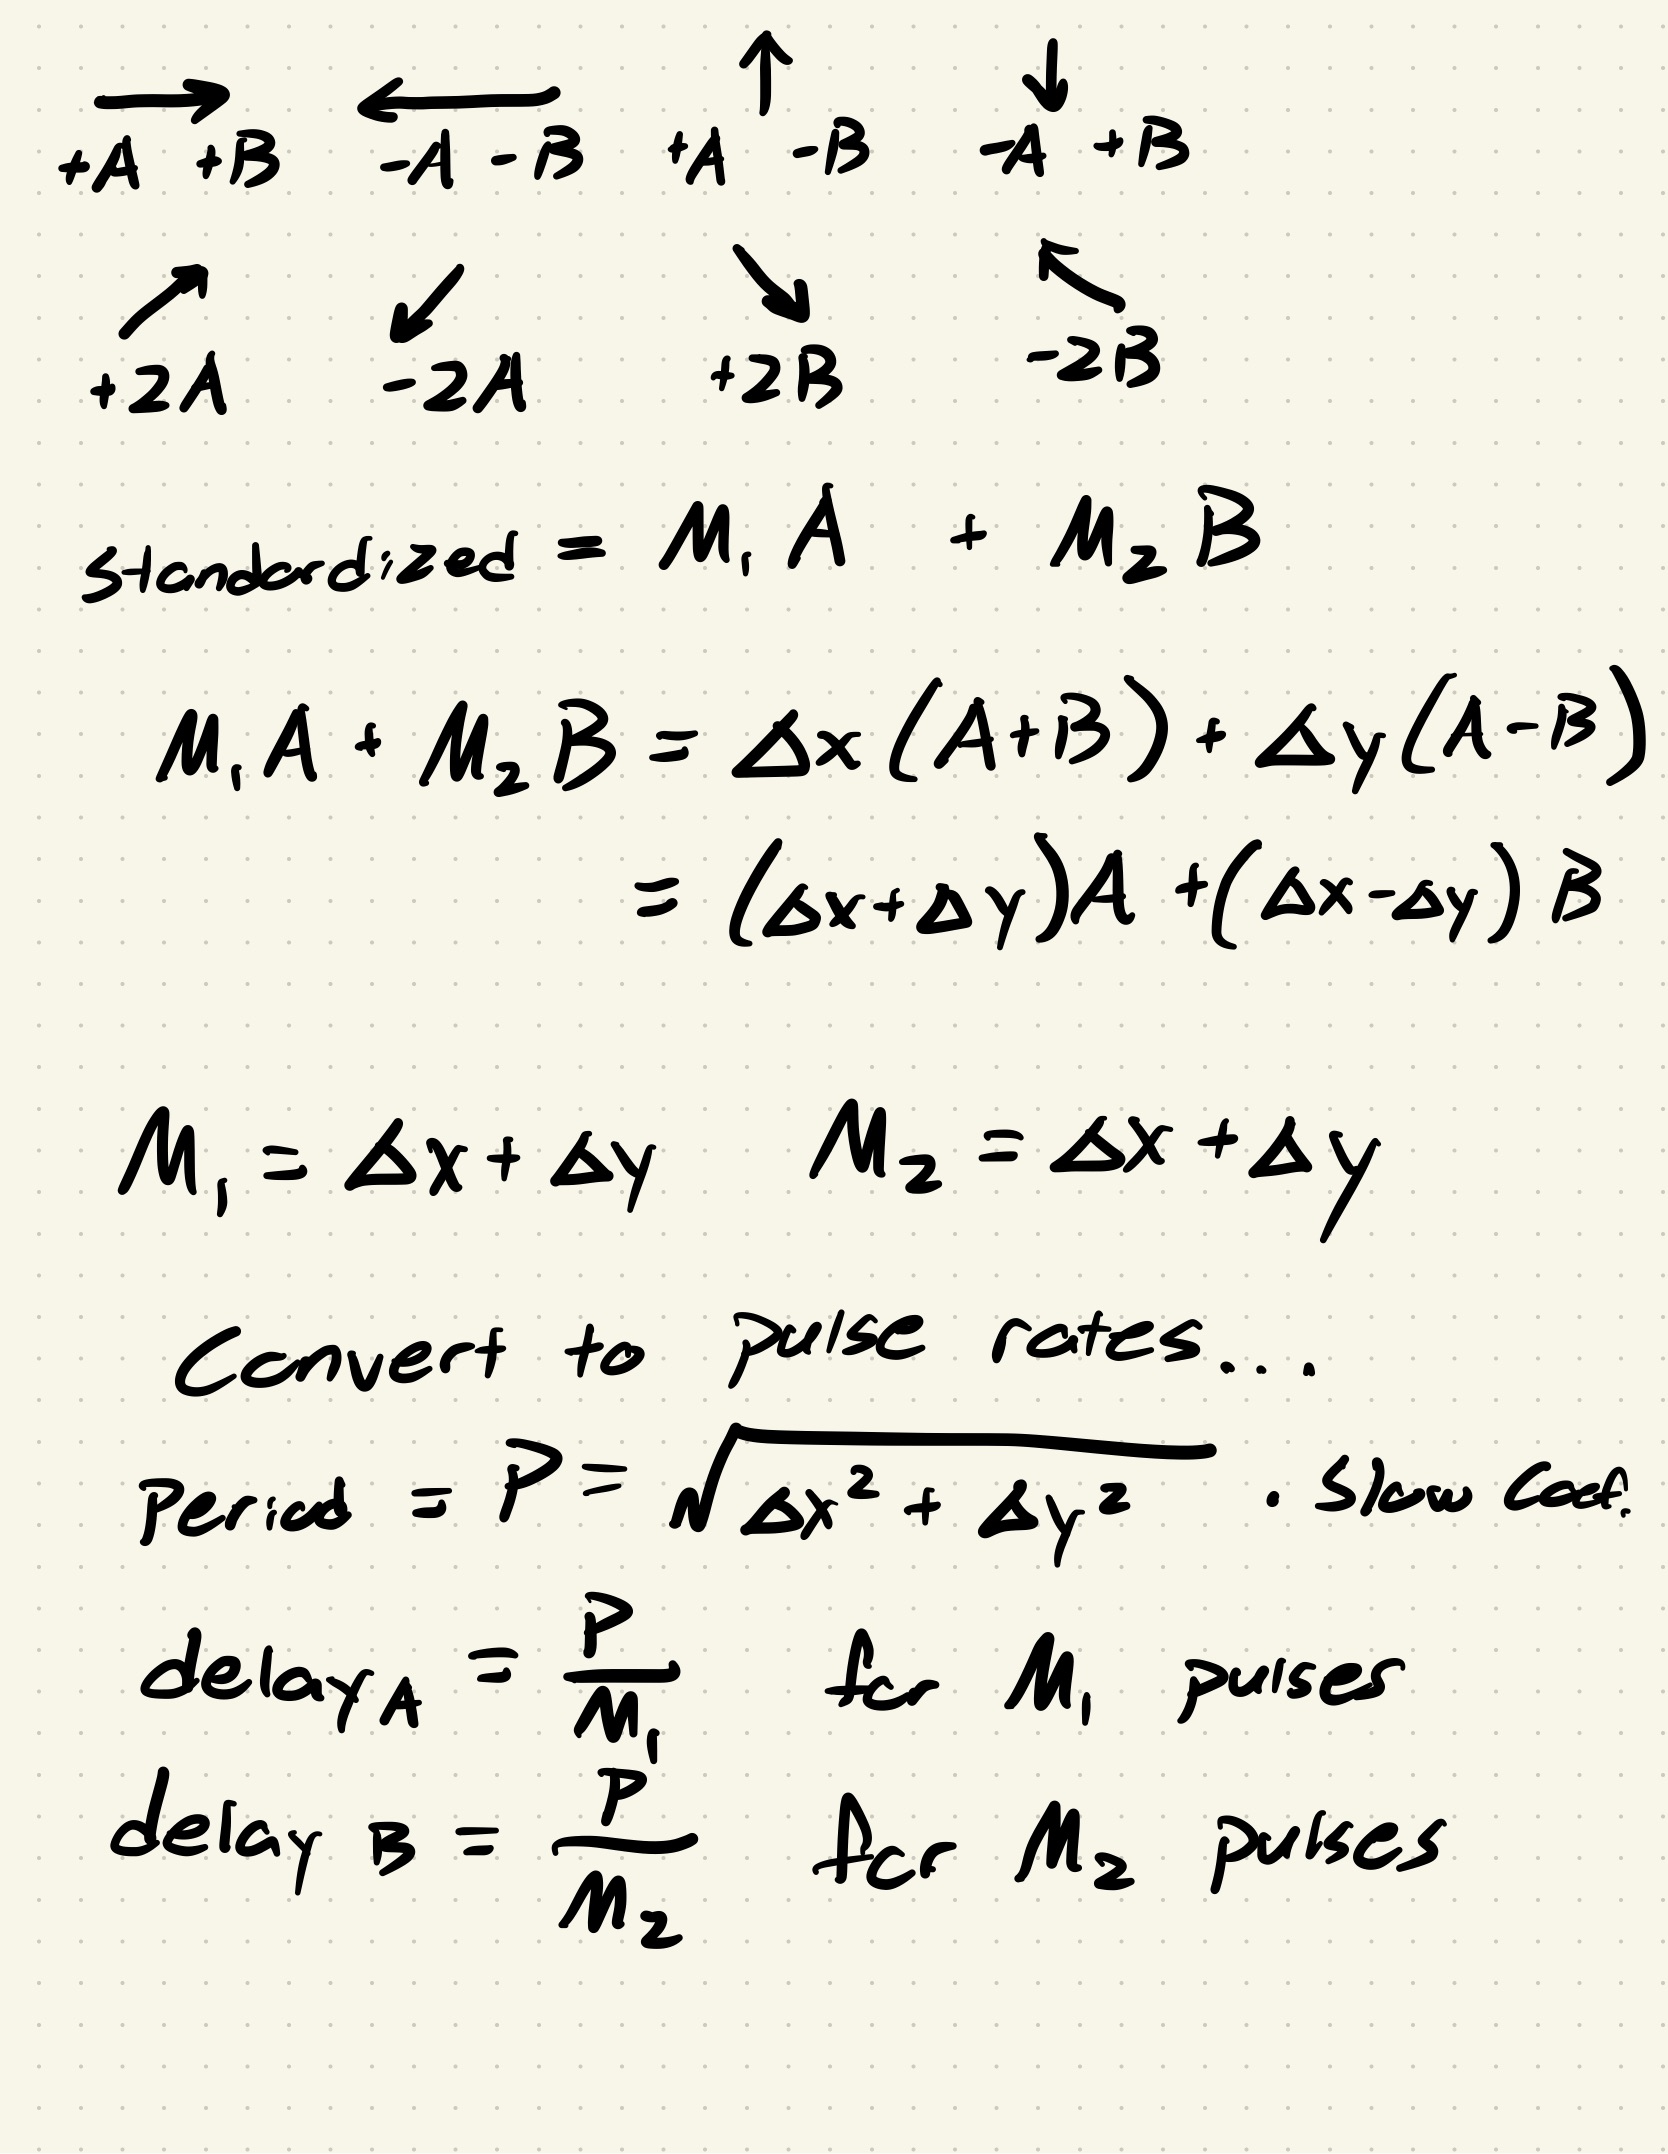 → ← ↑ ↓
+A +B -A -B +A -B -A +B
↗ ↙ ↘ ↖
+2A -2A +2B -2B
Standardized = M₁A + M₂B
M₁A + M₂B = Δx(A+B) + Δy(A-B)
= (Δx+Δy)A + (Δx-Δy)B
M₁ = Δx+Δy M₂ = Δx+Δy
Convert to pulse rates....
Period = P = √(Δx² + Δy²) · Slow Coef.
delay A = P/M₁ for M₁ pulses
delay B = P/M₂ for M₂ pulses